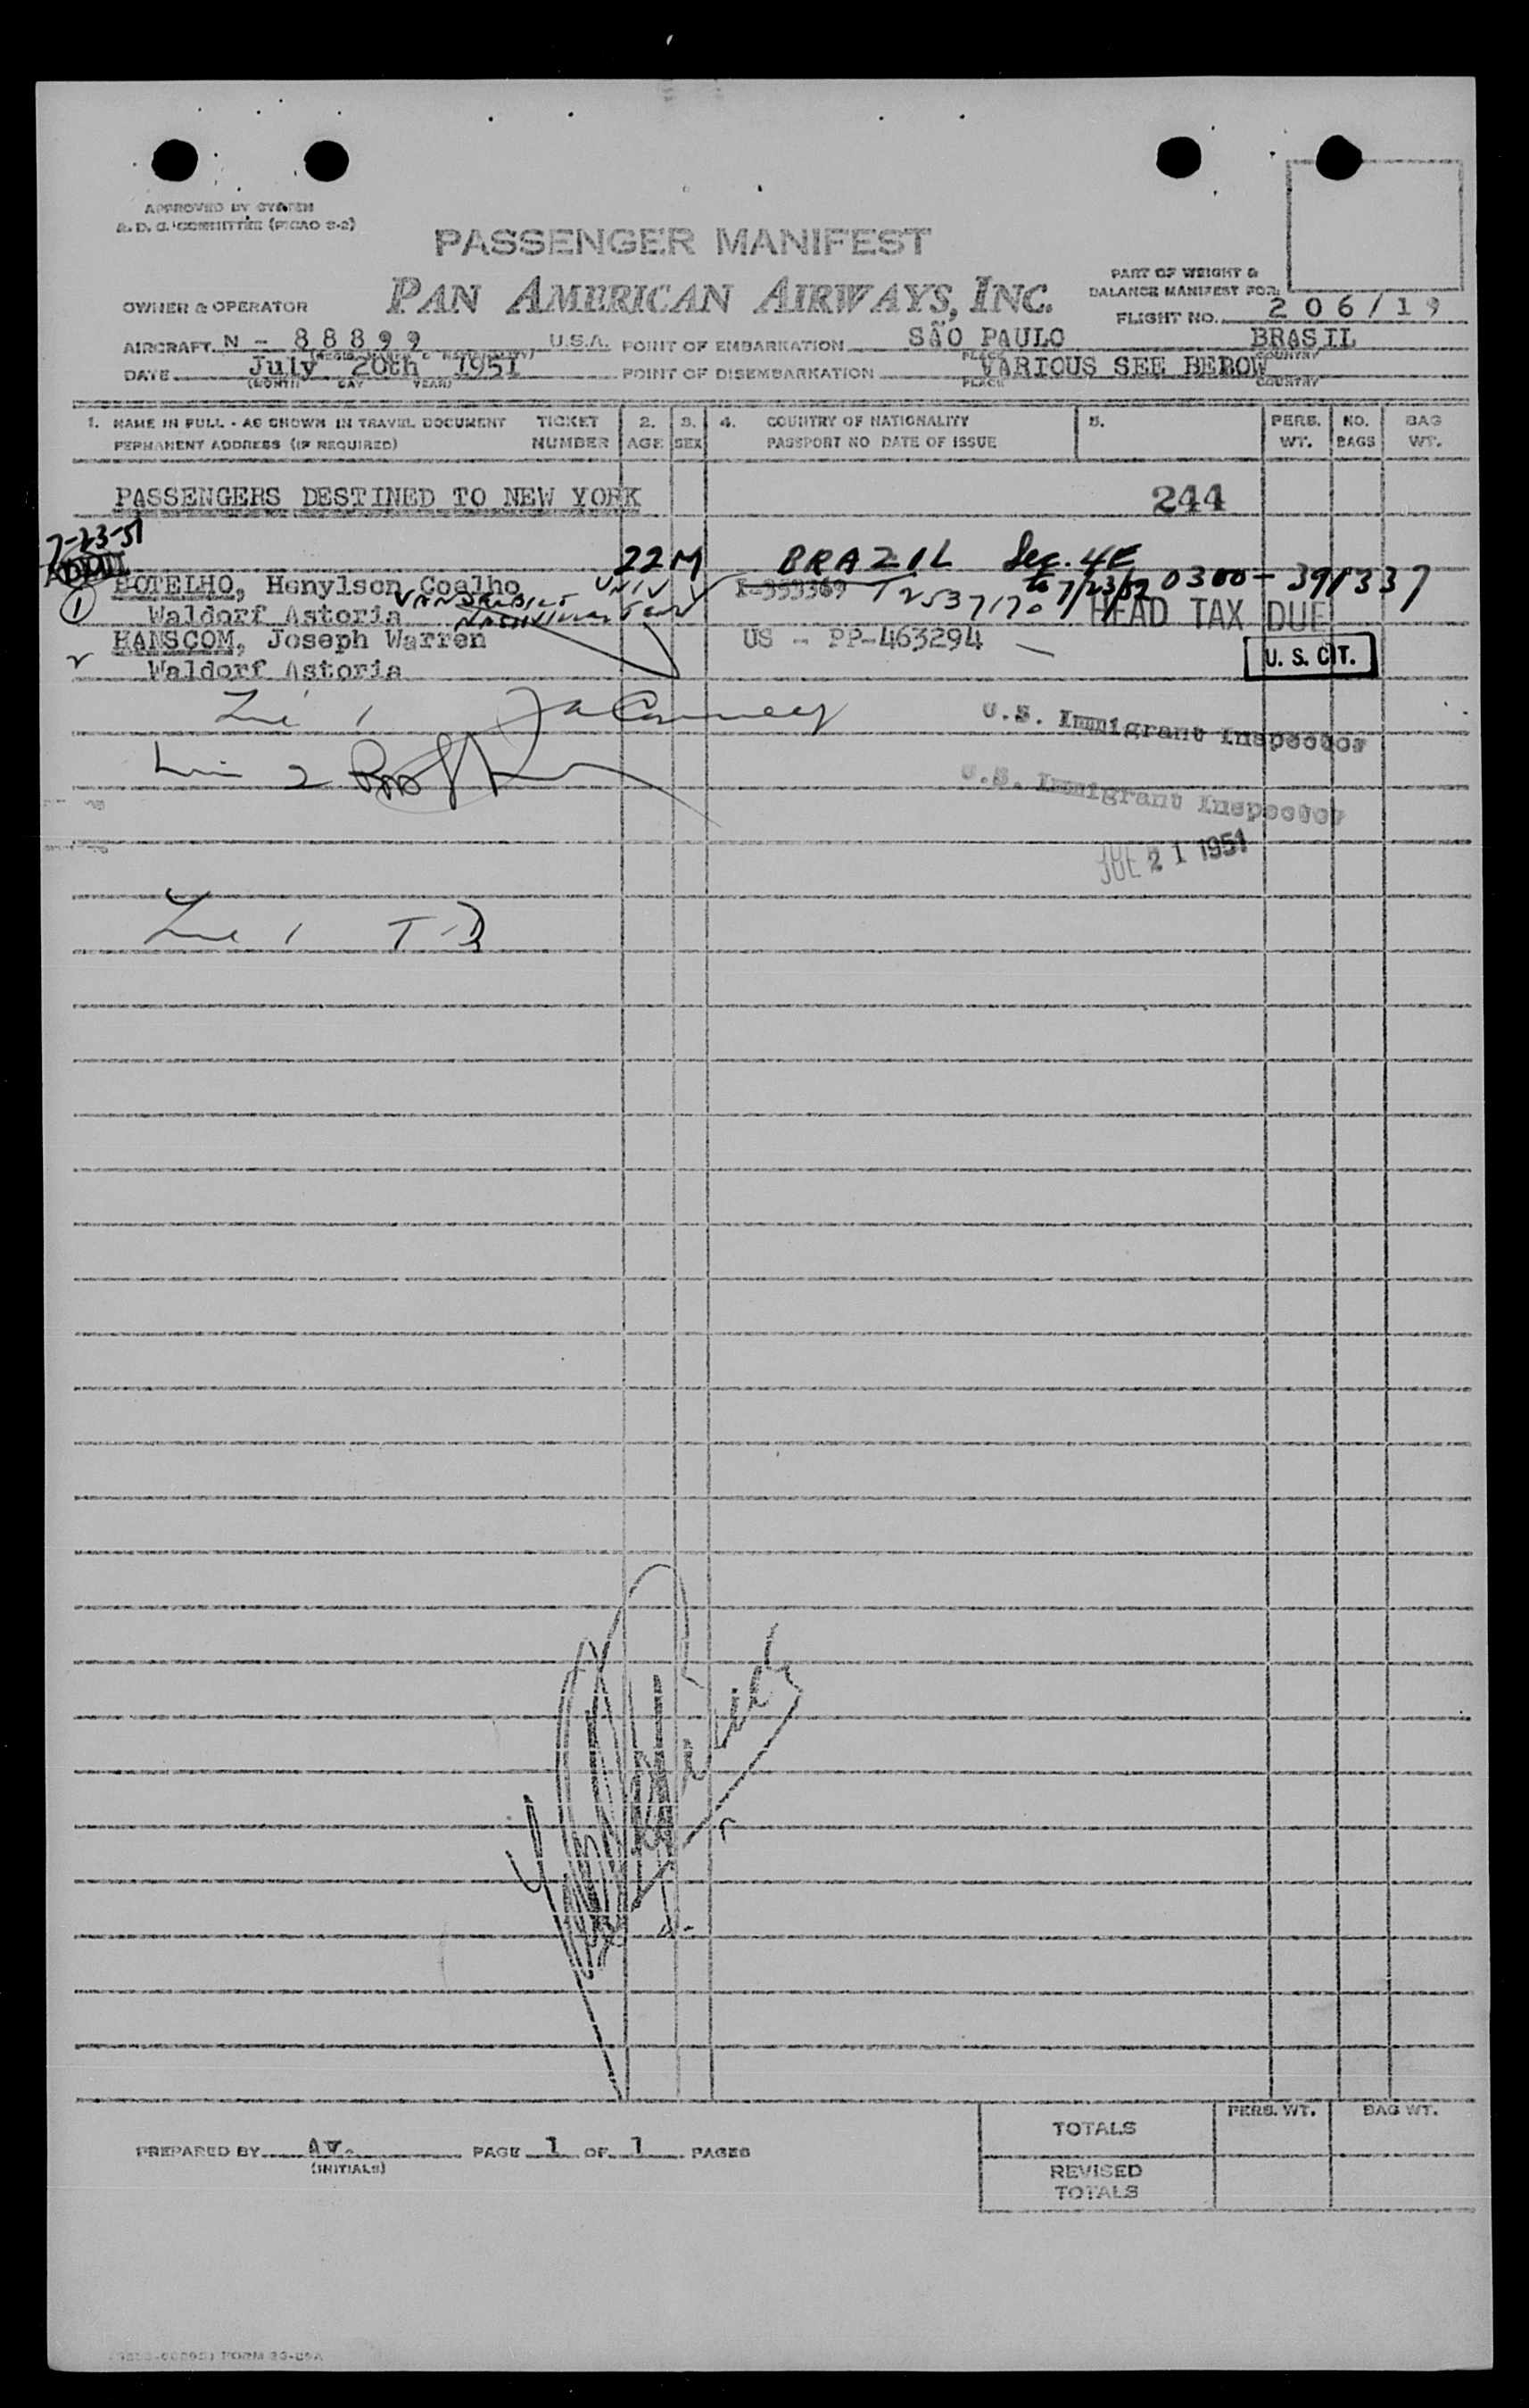 APPROVED BY SYSTEM
A. D. C. COMMITTEE (PICAO S-2)
PASSENGER MANIFEST
PAN AMERICAN AIRWAYS, INC.
PART OF WEIGHT &
BALANCE MANIFEST FOR:
OWNER & OPERATOR
FLIGHT NO. 206/19
AIRCRAFT N - 88899 U.S.A. POINT OF EMBARKATION SÃO PAULO BRASIL
PLACE COUNTRY
DATE July 20th 1951 POINT OF DISEMBARKATION VARIOUS SEE BEBOW
(MONTH DAY YEAR) PLACE COUNTRY
1. NAME IN FULL - AS SHOWN IN TRAVEL DOCUMENT TICKET 2. 3. 4. COUNTRY OF NATIONALITY 5. PERS. NO. BAG
PERMANENT ADDRESS (IF REQUIRED) NUMBER AGE SEX PASSPORT NO DATE OF ISSUE WT. BAGS WT.
PASSENGERS DESTINED TO NEW YORK 244
7-23-51
22 M BRAZIL Sec. 4E
BOTELHO, Henylson Coelho UNIV 353369 T 2537170 to 7/23/52 0300-391337
1 Waldorf Astoria VANDERBILT HEAD TAX DUE
HANSCOM, Joseph Warren US - PP-463294
2 Waldorf Astoria U. S. CIT.
Line 1
U.S. Immigrant Inspector
Line 2
U.S. Immigrant Inspector
JUL 21 1951
Line 1 T-D
PREPARED BY AV. PAGE 1 OF 1 PAGES
(INITIALS)
TOTALS PERS. WT. BAG WT.
REVISED
TOTALS